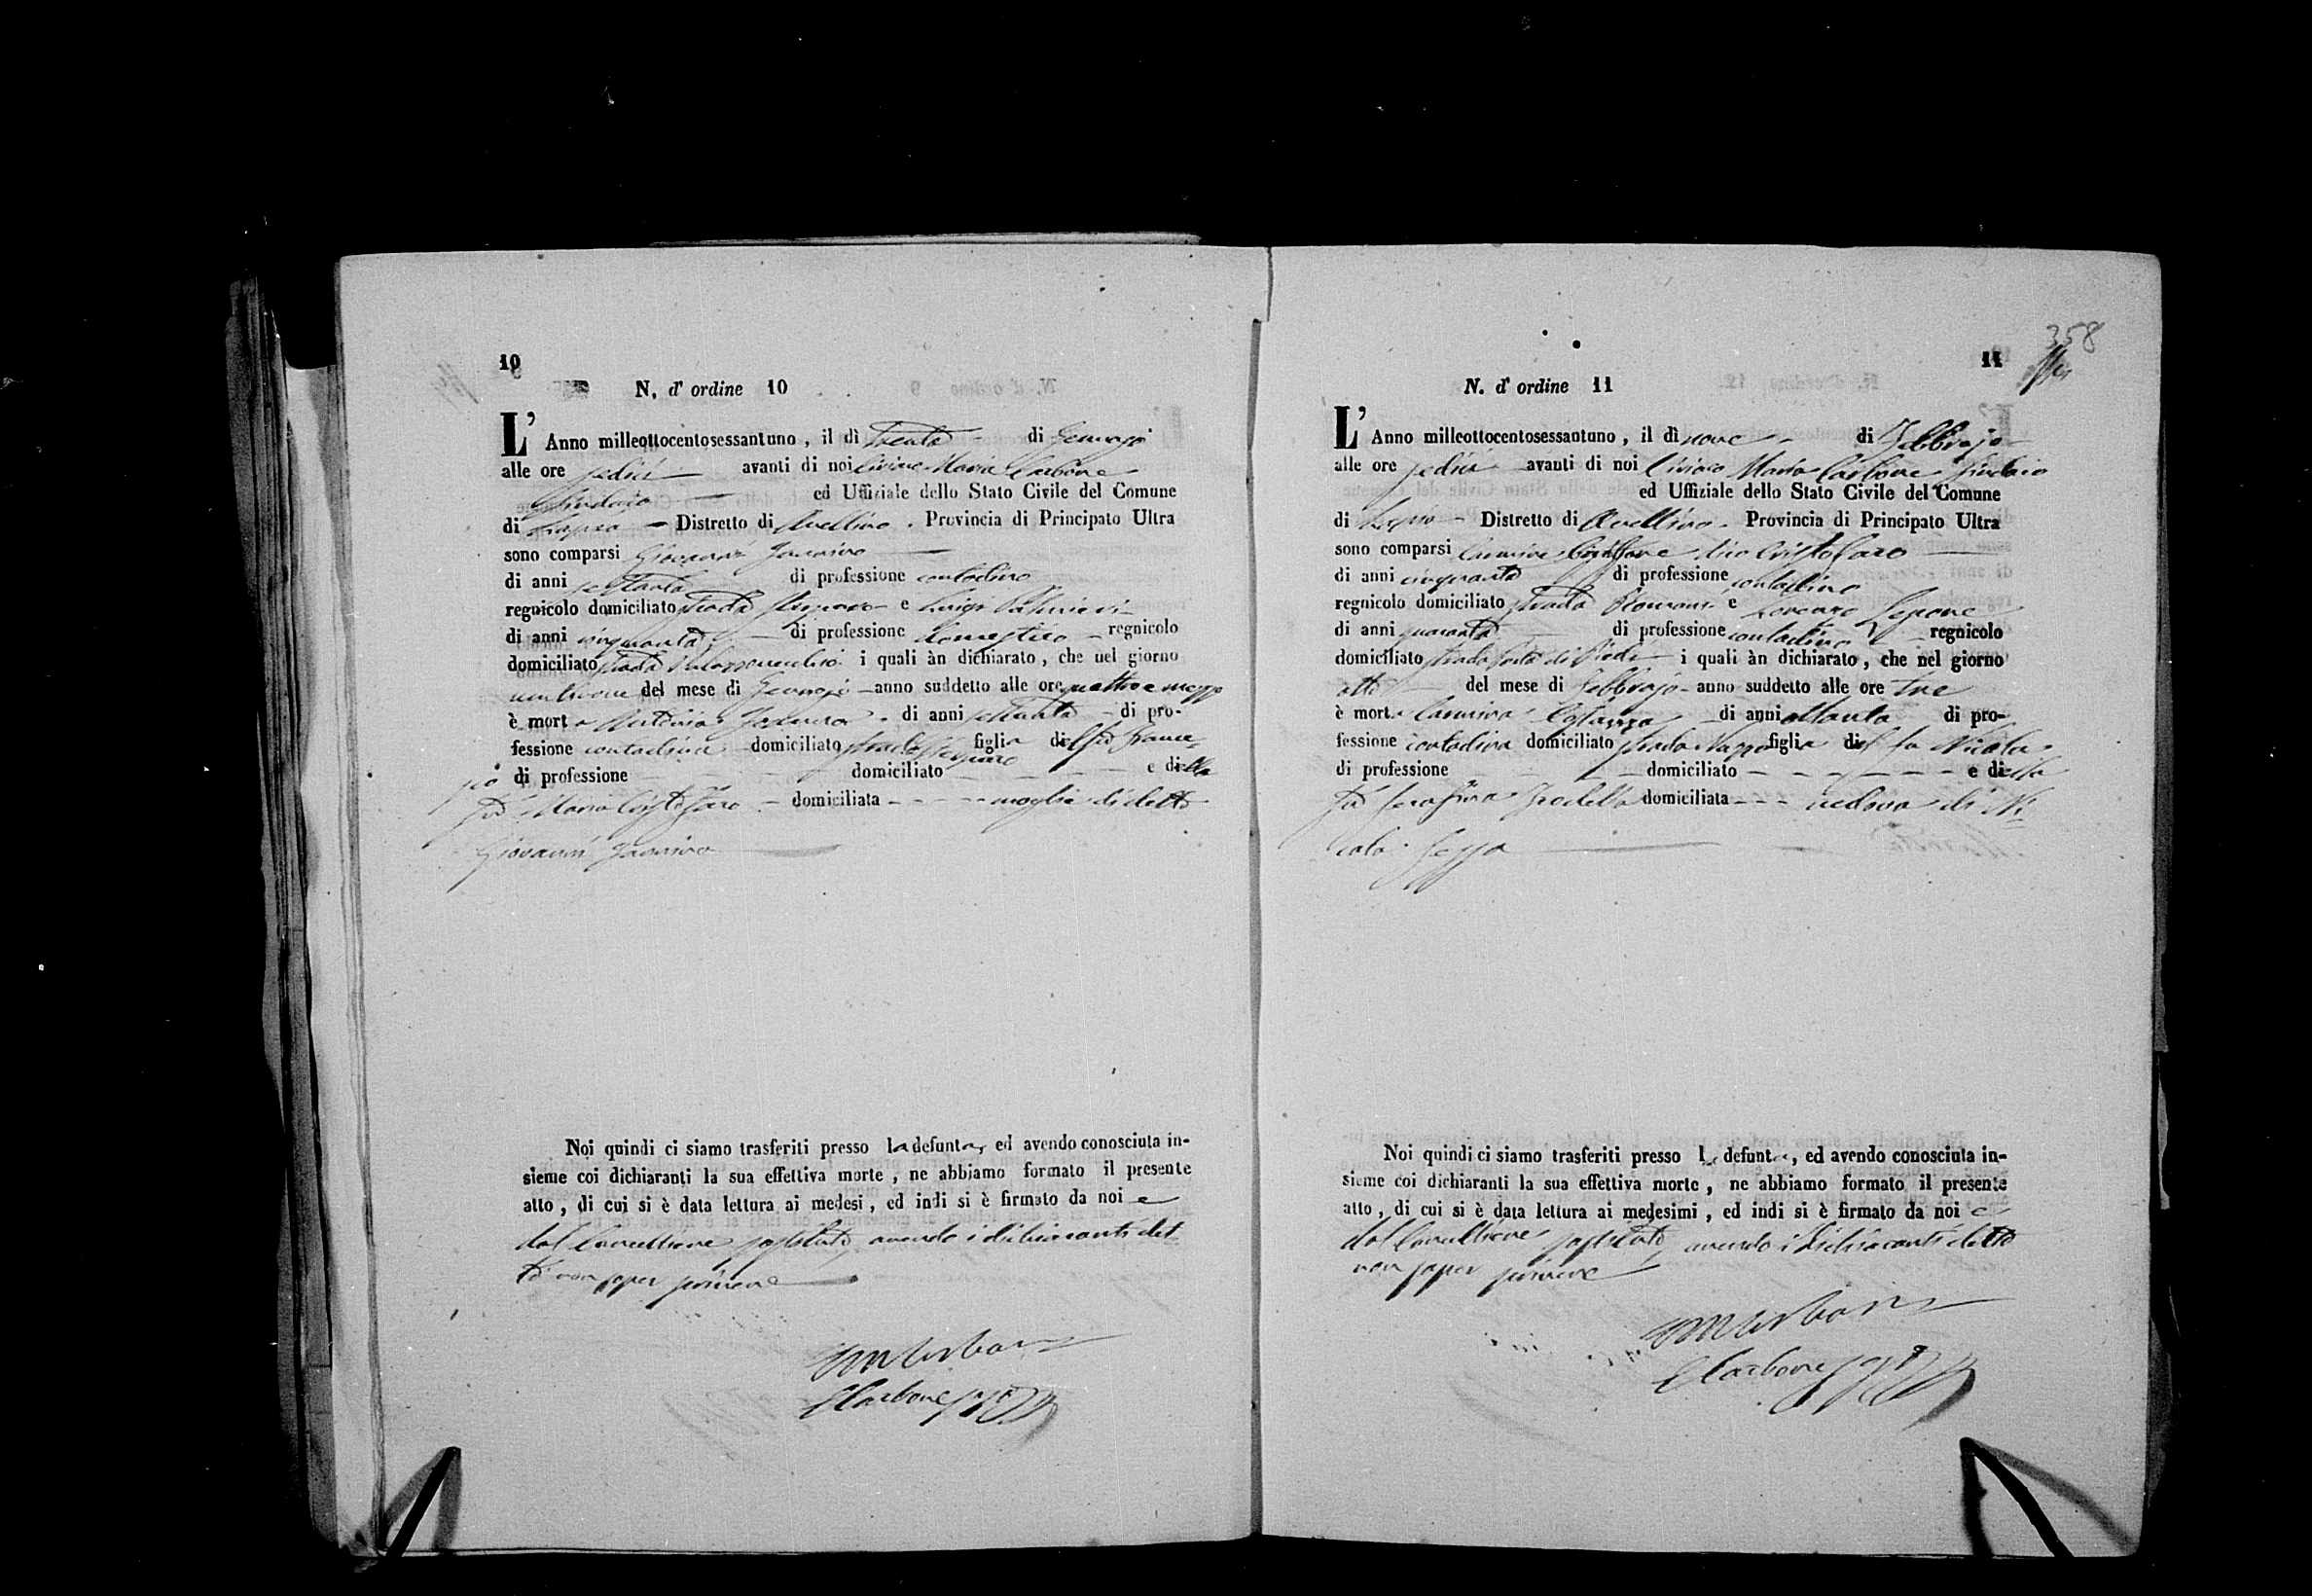 10
N. d' ordine 10
L' Anno milleottocentosessantuno , il dì trenta di Gennajo
alle ore sedici avanti di noi Ciriaco Maria Carbone
Sindaco ed Uffiziale dello Stato Civile del Comune
di Distretto di Avellino . Provincia di Principato Ultra
sono comparsi Giovanni
di anni settanta di professione contadino
regnicolo domiciliato strada e Luigi
di anni cinquanta di professione domestico regnicolo
domiciliato strada i quali àn dichiarato , che nel giorno
ventinove del mese di Gennajo anno suddetto alle ore quattro e mezzo
è morta Antonia di anni settanta di pro-
fessione contadina domiciliato strada figlia del fu France-
sco di professione domiciliato e della
fu Maria Cristofaro domiciliata moglie di detto
Giovanni
Noi quindi ci siamo trasferiti presso la defunta, ed avendo conosciuta in-
sieme coi dichiaranti la sua effettiva morte , ne abbiamo formato il presente
atto , di cui si è data lettura ai medesi , ed indi si è firmato da noi e
dal Cancelliere sostituto, avendo i dichiaranti det
to non saper scrivere
CMCarbone
CCarbone
358
11
N. d' ordine 11
L' Anno milleottocentosessantuno , il dì nove di Febbrajo
alle ore sedici avanti di noi Ciriaco Maria Carbone Sindaco
ed Uffiziale dello Stato Civile del Comune
di Lapio Distretto di Avellino . Provincia di Principato Ultra
sono comparsi Carmine Cristofaro
di anni cinquanta di professione contadino
regnicolo domiciliato strada e Lorenzo Lepore
di anni quaranta di professione contadino regnicolo
domiciliato strada i quali àn dichiarato , che nel giorno
otto del mese di Febbrajo anno suddetto alle ore tre
è morta Carmina Costanza di anni ottanta di pro-
fessione contadina domiciliato strada figlia del fu Nicola
di professione domiciliato e della
fu Serafina domiciliata vedova di Ni
cola
Noi quindi ci siamo trasferiti presso la defunta, ed avendo conosciuta in-
sieme coi dichiaranti la sua effettiva morte , ne abbiamo formato il presente
atto , di cui si è data lettura ai medesimi , ed indi si è firmato da noi e
dal Cancelliere sostituto, avendo i dichiaranti detto
non saper scrivere
CMCarbone
CCarbone